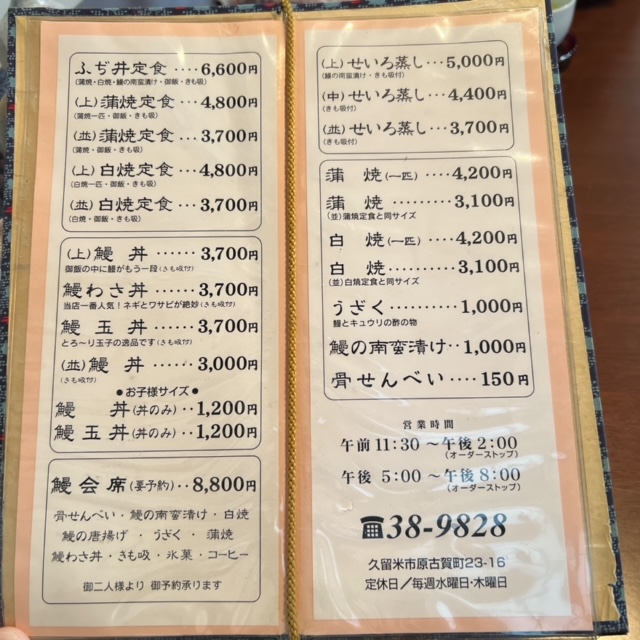 ふぢ井定食････6,600円
(蒲焼・白焼・鰻の南蛮漬け・御飯・きも吸)
(上)蒲焼定食･･･4,800円
(蒲焼一匹・御飯・きも吸)
(並)蒲焼定食･･･3,700円
(蒲焼・御飯・きも吸)
(上)白焼定食･･･4,800円
(白焼一匹・御飯・きも吸)
(並)白焼定食･･･3,700円
(白焼・御飯・きも吸)
(上)鰻 丼･･････3,700円
御飯の中に鰻がもう一段(きも吸付)
鰻わさ丼･･････3,700円
当店一番人気!ネギとワサビが絶妙(きも吸付)
鰻 玉 丼･･････3,700円
とろ〜り玉子の逸品です(きも吸付)
(並)鰻 丼･･････3,000円
(きも吸付)
●お子様サイズ●
鰻 丼(丼のみ)･･1,200円
鰻 玉 丼(丼のみ)･･1,200円
鰻 会 席(要予約)･･8,800円
骨せんべい・鰻の南蛮漬け・白焼
鰻の唐揚げ・うざく・蒲焼
鰻わさ丼・きも吸・氷菓・コーヒー
御二人様より 御予約承ります
(上)せいろ蒸し･･･5,000円
(鰻の南蛮漬け・きも吸付)
(中)せいろ蒸し･･･4,400円
(きも吸付)
(並)せいろ蒸し･･･3,700円
(きも吸付)
蒲 焼(一匹)･･･4,200円
蒲 焼･････････3,100円
(並)蒲焼定食と同サイズ
白 焼(一匹)･･･4,200円
白 焼･････････3,100円
(並)白焼定食と同サイズ
うざく･････････1,000円
鰻とキュウリの酢の物
鰻の南蛮漬け･･1,000円
骨せんべい････150円
営業時間
午前 11:30 〜午後 2:00
(オーダーストップ)
午後 5:00 〜午後 8:00
(オーダーストップ)
☎38-9828
久留米市原古賀町23-16
定休日/毎週水曜日・木曜日